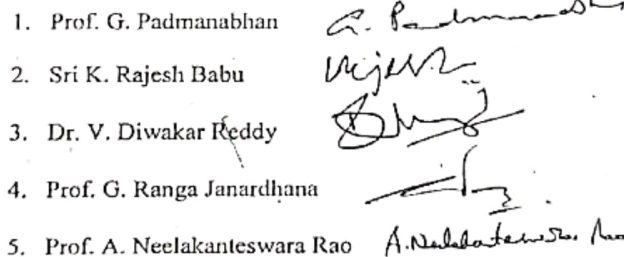 1. Prof. G. Padmanabhan G. Padmanabhan
2. Sri K. Rajesh Babu
3. Dr. V. Diwakar Reddy
4. Prof. G. Ranga Janardhana
5. Prof. A. Neelakanteswara Rao A. Neelakanteswara Rao